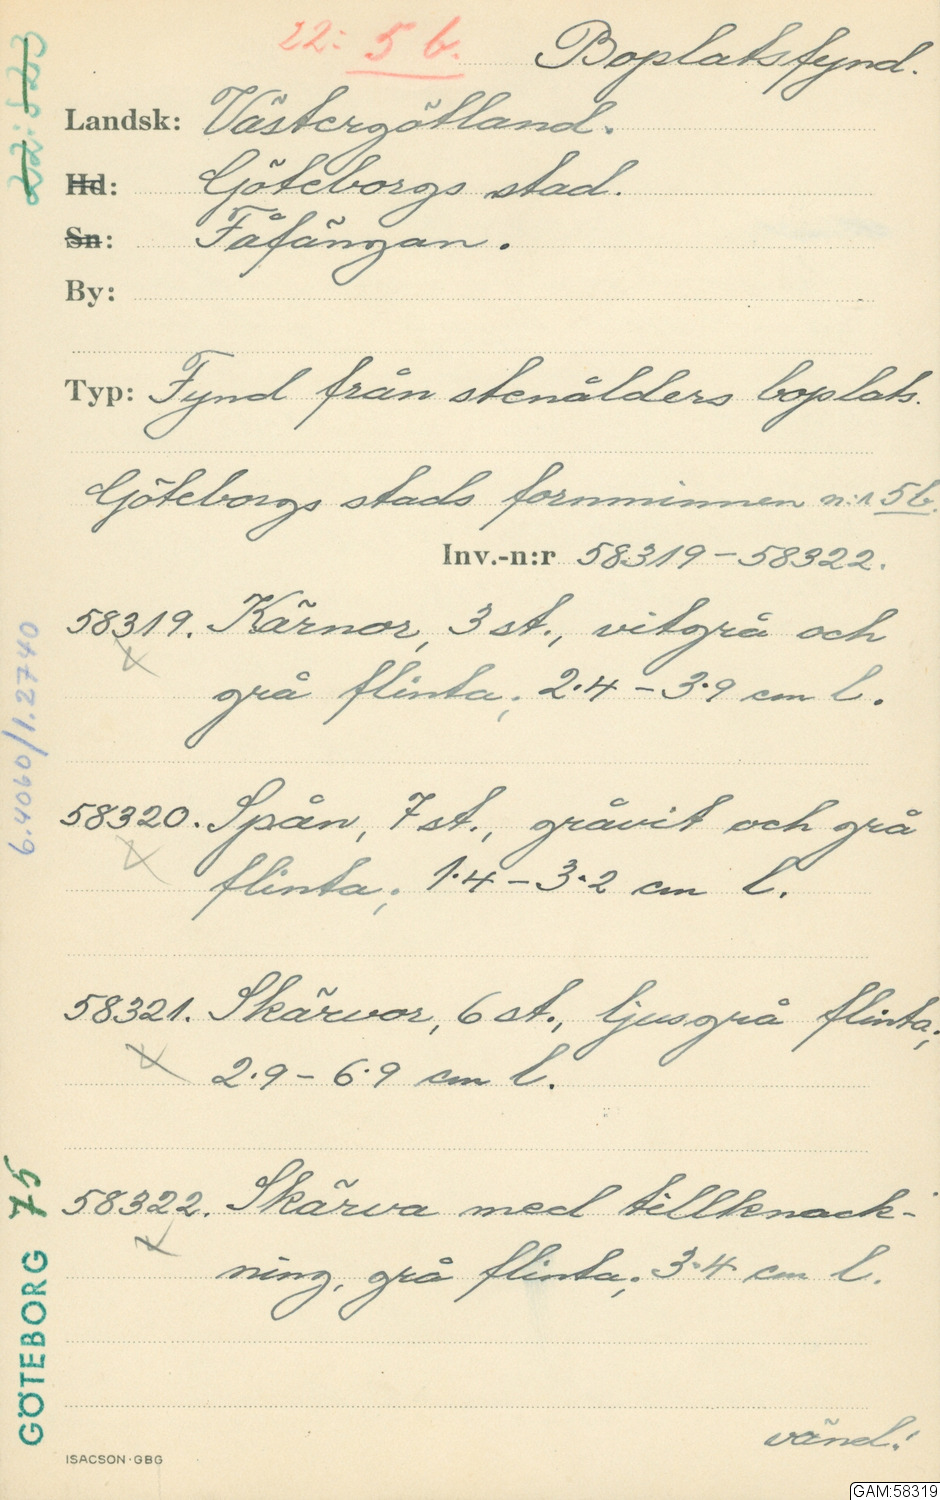 22: 5 b.
Boplatsfynd.
22:523
Landsk: Västergötland.
Hd: Göteborgs stad.
Sn: Fåfängan.
By:
Typ: Fynd från stenålders boplats.
Göteborgs stads fornminnen n:r 5 b.
Inv.-n:r 58319-58322.
58319. Kärnor, 3 st., vitgrå och
grå flinta; 2.4 - 3.9 cm l.
6.4060/1.2740
58320. Spån, 7 st., gråvit och grå
flinta; 1.4 - 3.2 cm l.
58321. Skärvor, 6 st., ljusgrå flinta;
2.9 - 6.9 cm l.
58322. Skärva med tillknack-
ning, grå flinta; 3.4 cm l.
GÖTEBORG 75
vänd!
ISACSON·GBG
GAM:58319